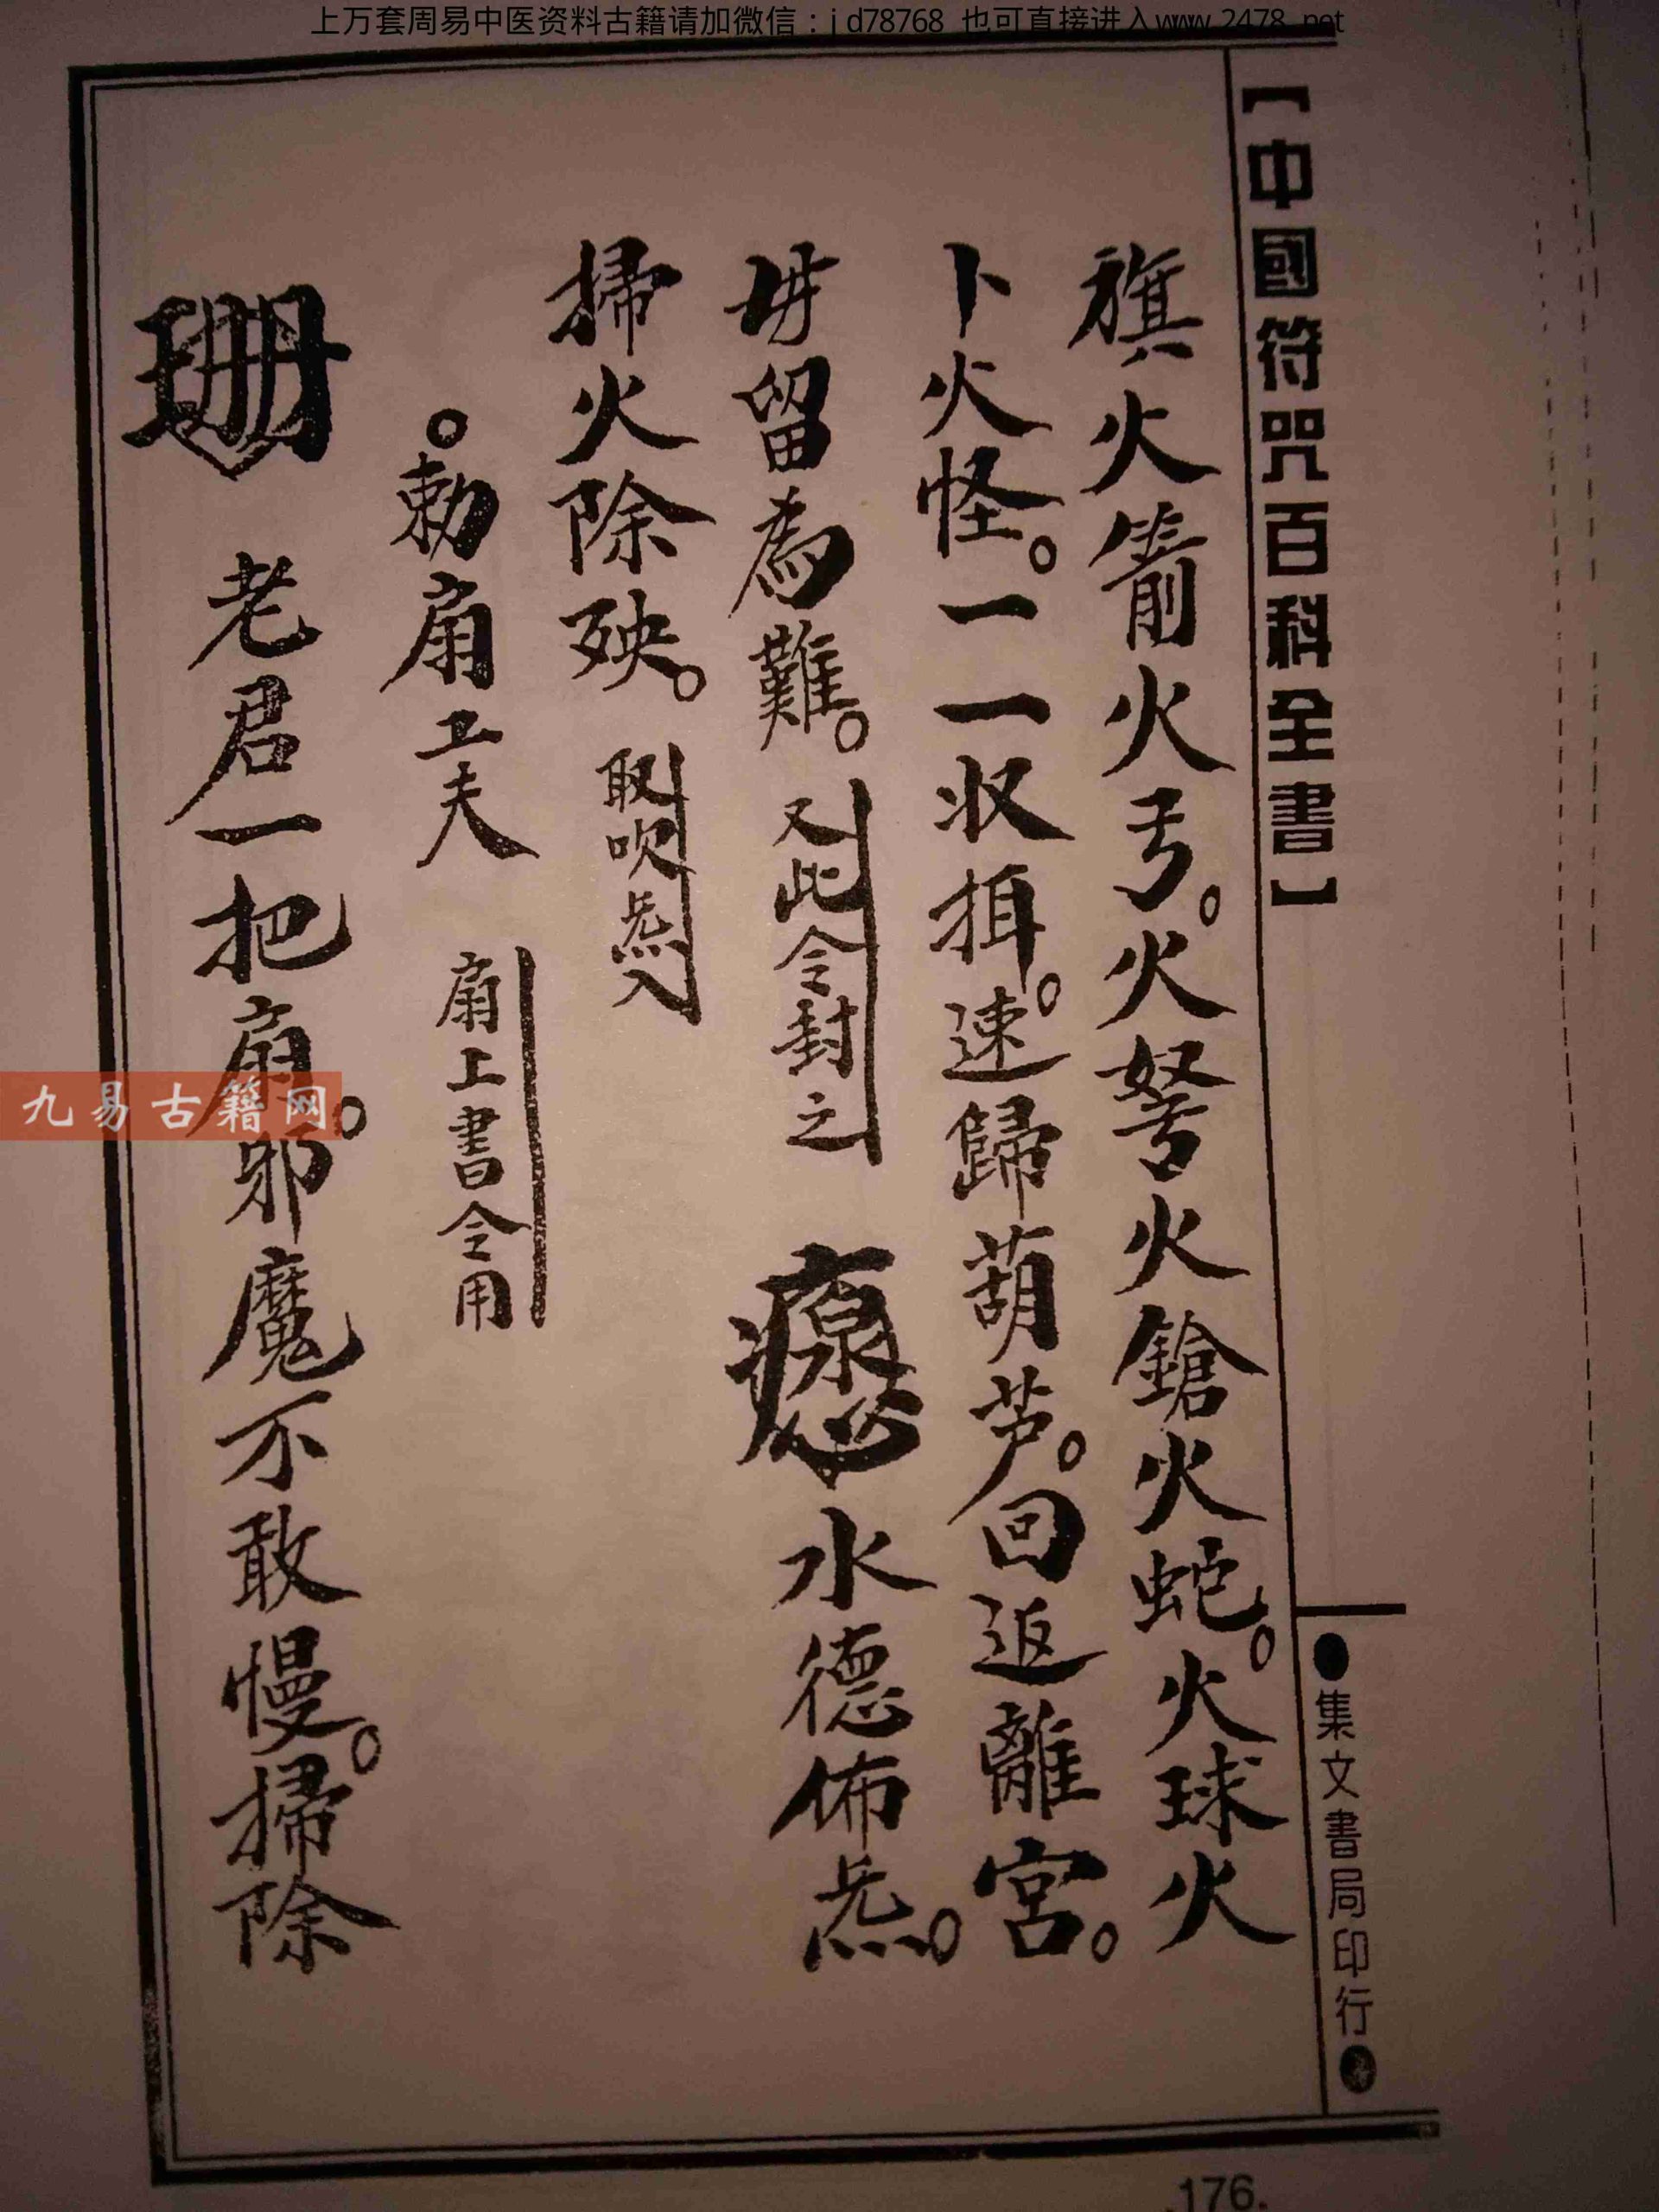 上万套周易中医资料古籍请加微信：jd78768 也可直接进入www.2478.net
【中國符咒百科全書】
●集文書局印行●
旗火箭火弓。火弩火鎗火蛇。火球火
卜火怪。一一收掛。速歸葫芦。回返離宮。
毋留為難。又此令封之 水德佈炁。
掃火除殃。取吹炁入
。勅扇工夫 扇上書令用
老君一把扇。邪魔不敢慢。掃除
九易古籍网
.176.